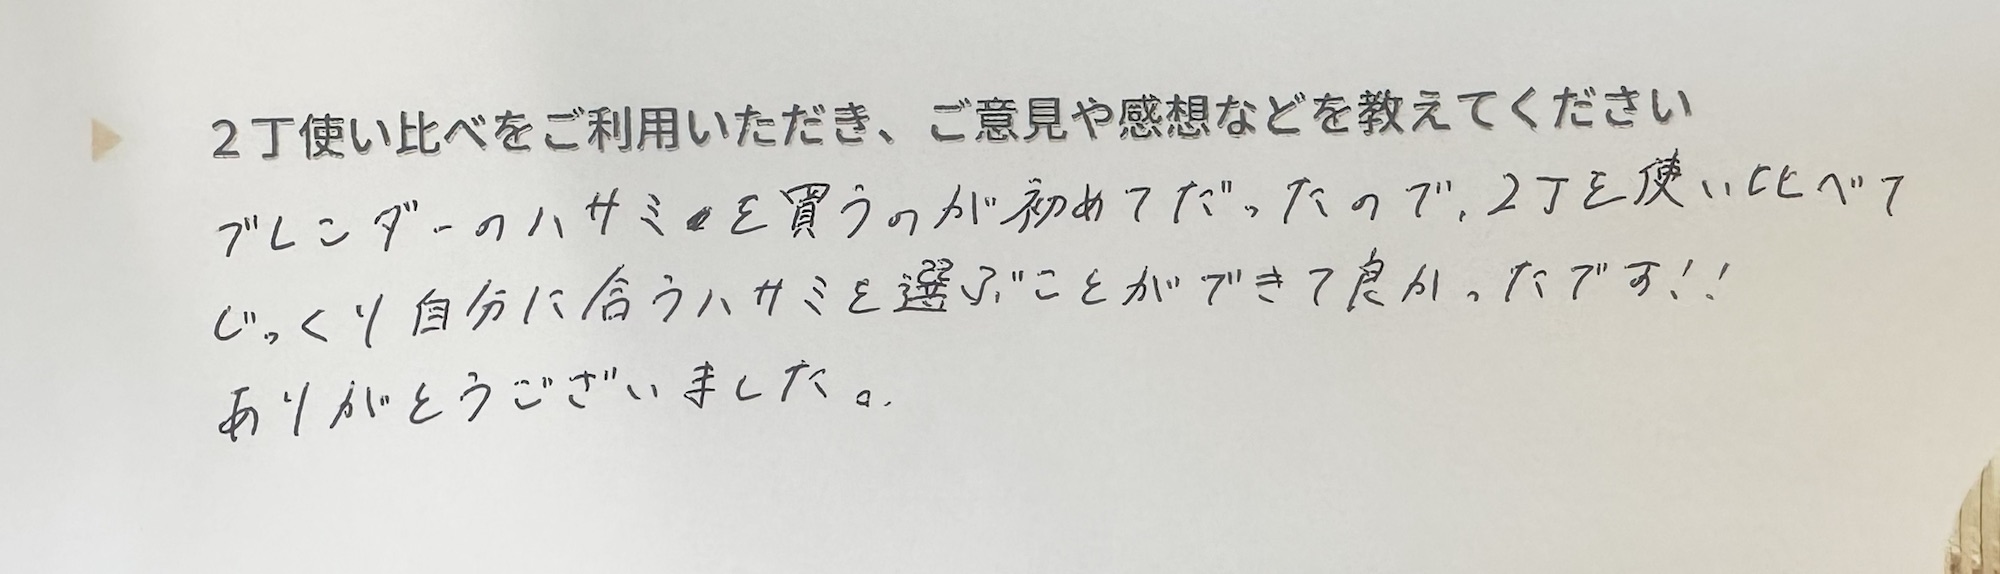 2丁使い比べをご利用いただき、ご意見や感想などを教えてください
ブレンダーのハサミを買うのが初めてだったので、2丁を使い比べて
じっくり自分に合うハサミを選ぶことができて良かったです!!
ありがとうございました。